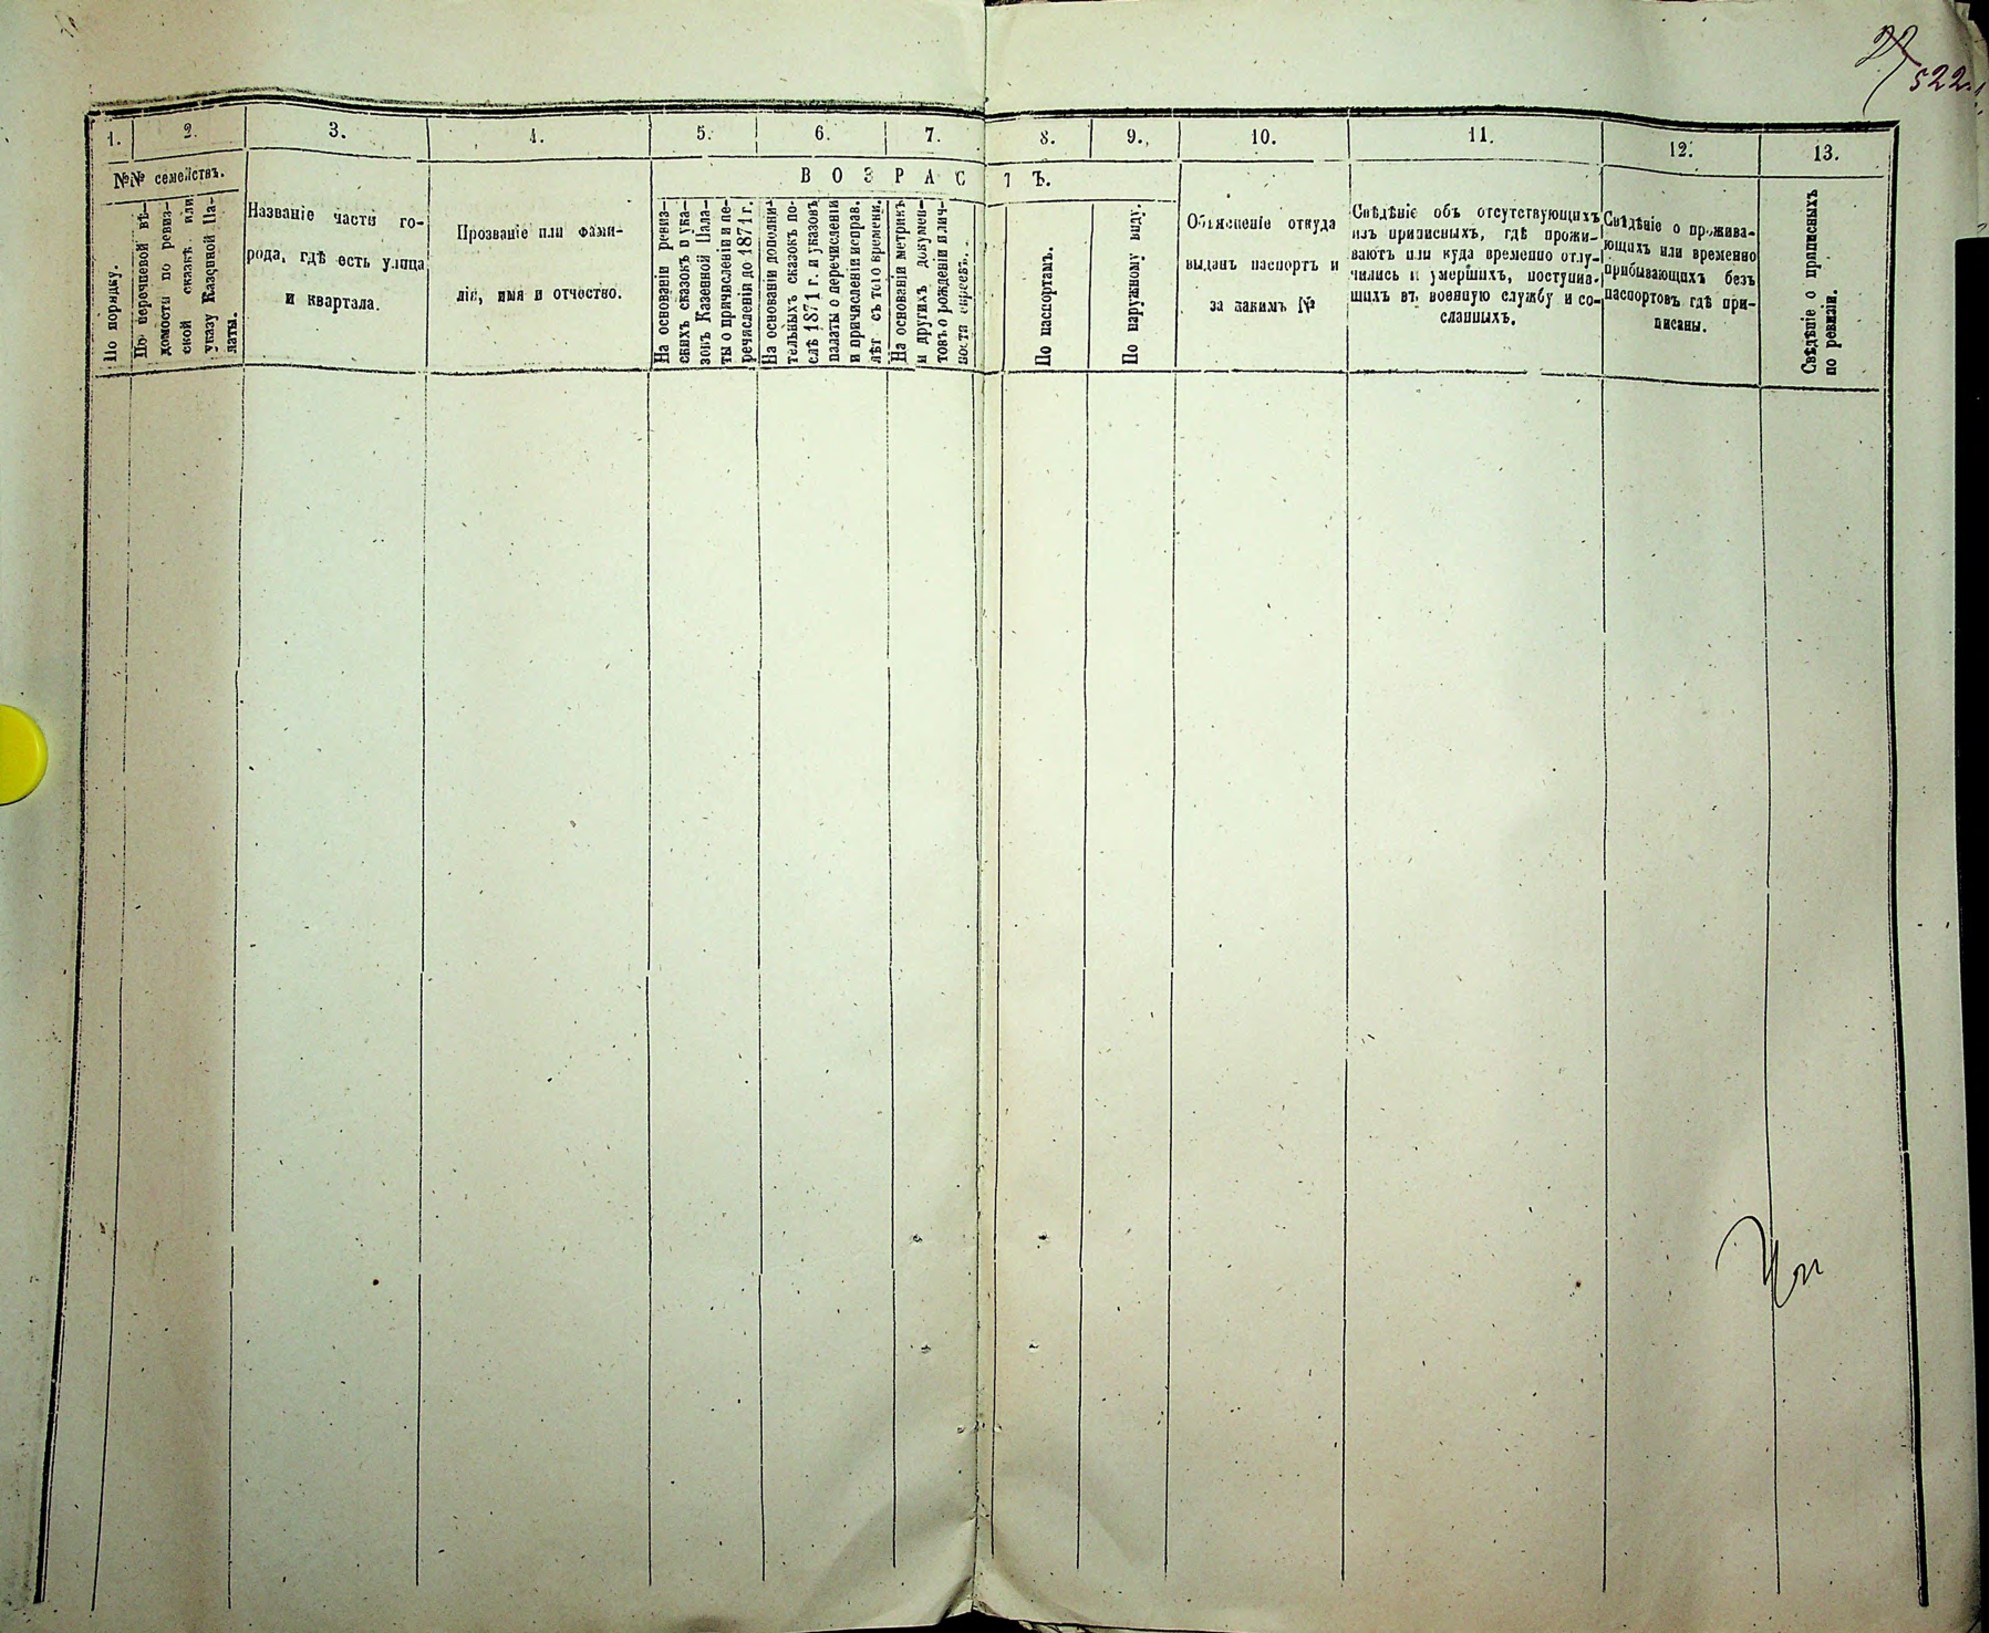 522.
1. 2. 3. 4. 5. 6. 7. 8. 9. 10. 11. 12. 13.
№№ семействъ.
В О З Р А С Т Ъ.
По порядку.
По перечневой вѣ-
домости по ревиз-
ской сказкѣ или
указу Казенной Па-
латы.
Названіе части го-
рода, гдѣ есть улица
и квартала.
Прозваніе или фами-
лія, имя и отчество.
На основаніи ревиз-
скихъ сказокъ и ука-
зовъ Казенной Пала-
ты о причисленіи и пе-
речисленіи до 1871 г.
На основаніи дополни-
тельныхъ сказокъ по-
слѣ 1871 г. и указовъ
палаты о перечисленіи
и причисленіи исправ.
лѣт съ того времени.
На основаніи метрикъ
и другихъ докумен-
товъ о рожденіи и лич-
ности евреевъ.
По паспортамъ.
По наружному виду.
Объясненіе откуда
выданъ паспортъ и
за какимъ №
Свѣдѣніе объ отсутствующихъ
изъ приписныхъ, гдѣ прожи-
ваютъ или куда временно отлу-
чились и умершихъ, поступив-
шихъ въ военную службу и со-
сланныхъ.
Свѣдѣніе о прожива-
ющихъ или временно
прибывающихъ безъ
паспортовъ гдѣ при-
писаны.
Свѣдѣніе о приписныхъ
по ревизіи.